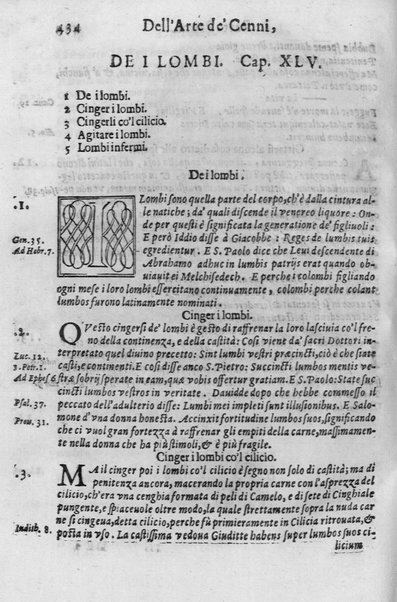 434 Dell'Arte de' Cenni,
DE I LOMBI. Cap. XLV.
1 De i lombi.
2 Cinger i lombi.
3 Cingerli co'l cilicio.
4 Agitare i lombi.
5 Lombi infermi.
Dei lombi.
.1.
Lombi sono quella parte del corpo, ch'è dalla cintura al
le natiche; da' quali discende il venereo liquore: On
de per questi è significata la generatione de' figliuoli:
Gen. 35.
E però Iddio disse à Giacobbe: Reges de lumbis tuis
Ad Hebr. 7.
egredientur. E S. Paolo dice che Leui descendente di
Abrahamo adhuc in lumbis patris erat quando ob-
uiauit ei Melchisedech. E perche i colombi figliando
ogni mese i loro lombi essercitano continuamente, colombi perche colant
lumbos furono latinamente nominati.
Cinger i lombi.
.2.
QVesto cingersi de' lombi è gesto di raffrenar la loro lasciuia co'l fre
no della continenza, e della castità: Così viene da' sacri Dottori in-
Luc. 12.
terpretato quel diuino precetto: Sint lumbi vestri præcincti, ciò è che siate
1. Petr. 1.
casti, e continenti. E così disse anco S. Pietro: Succincti lumbos mentis ve-
Ad Ephes 6
stræ sobrij sperate in eam, quæ vobis offertur gratiam. E S. Paolo: State suc
cincti lumbos vestros in veritate. Dauidde dopo che hebbe commesso il
Psal. 37.
peccato dell'adulterio disse: Lumbi mei impleti sunt illusionibus. E Salo-
Prou. 31.
mone d'vna donna honesta. Accinxit fortitudine lumbos suos, significando
che ci vuol gran fortezza à raffrenar gli empiti della carne, massimamen-
te nella donna che ha più stimoli, & è più fragile.
Cinger i lombi co'l cilicio.
.3.
MA il cinger poi i lombi co'l cilicio è segno non solo di castità; ma di
penitenza ancora, macerando la propria carne con l'asprezza del
cilicio, ch'era vna cenghia formata di peli di Camelo, e di sete di Cinghiale
pungente, e spiaceuole oltre modo, la quale strettamente sù la nuda car
ne si cingeua, detta cilicio, perche fù primieramente in Cilicia ritrouata, &
Iudith. 8.
posta in vso. La castissima vedoua Giuditte habens super lumbos suos ci-
licium